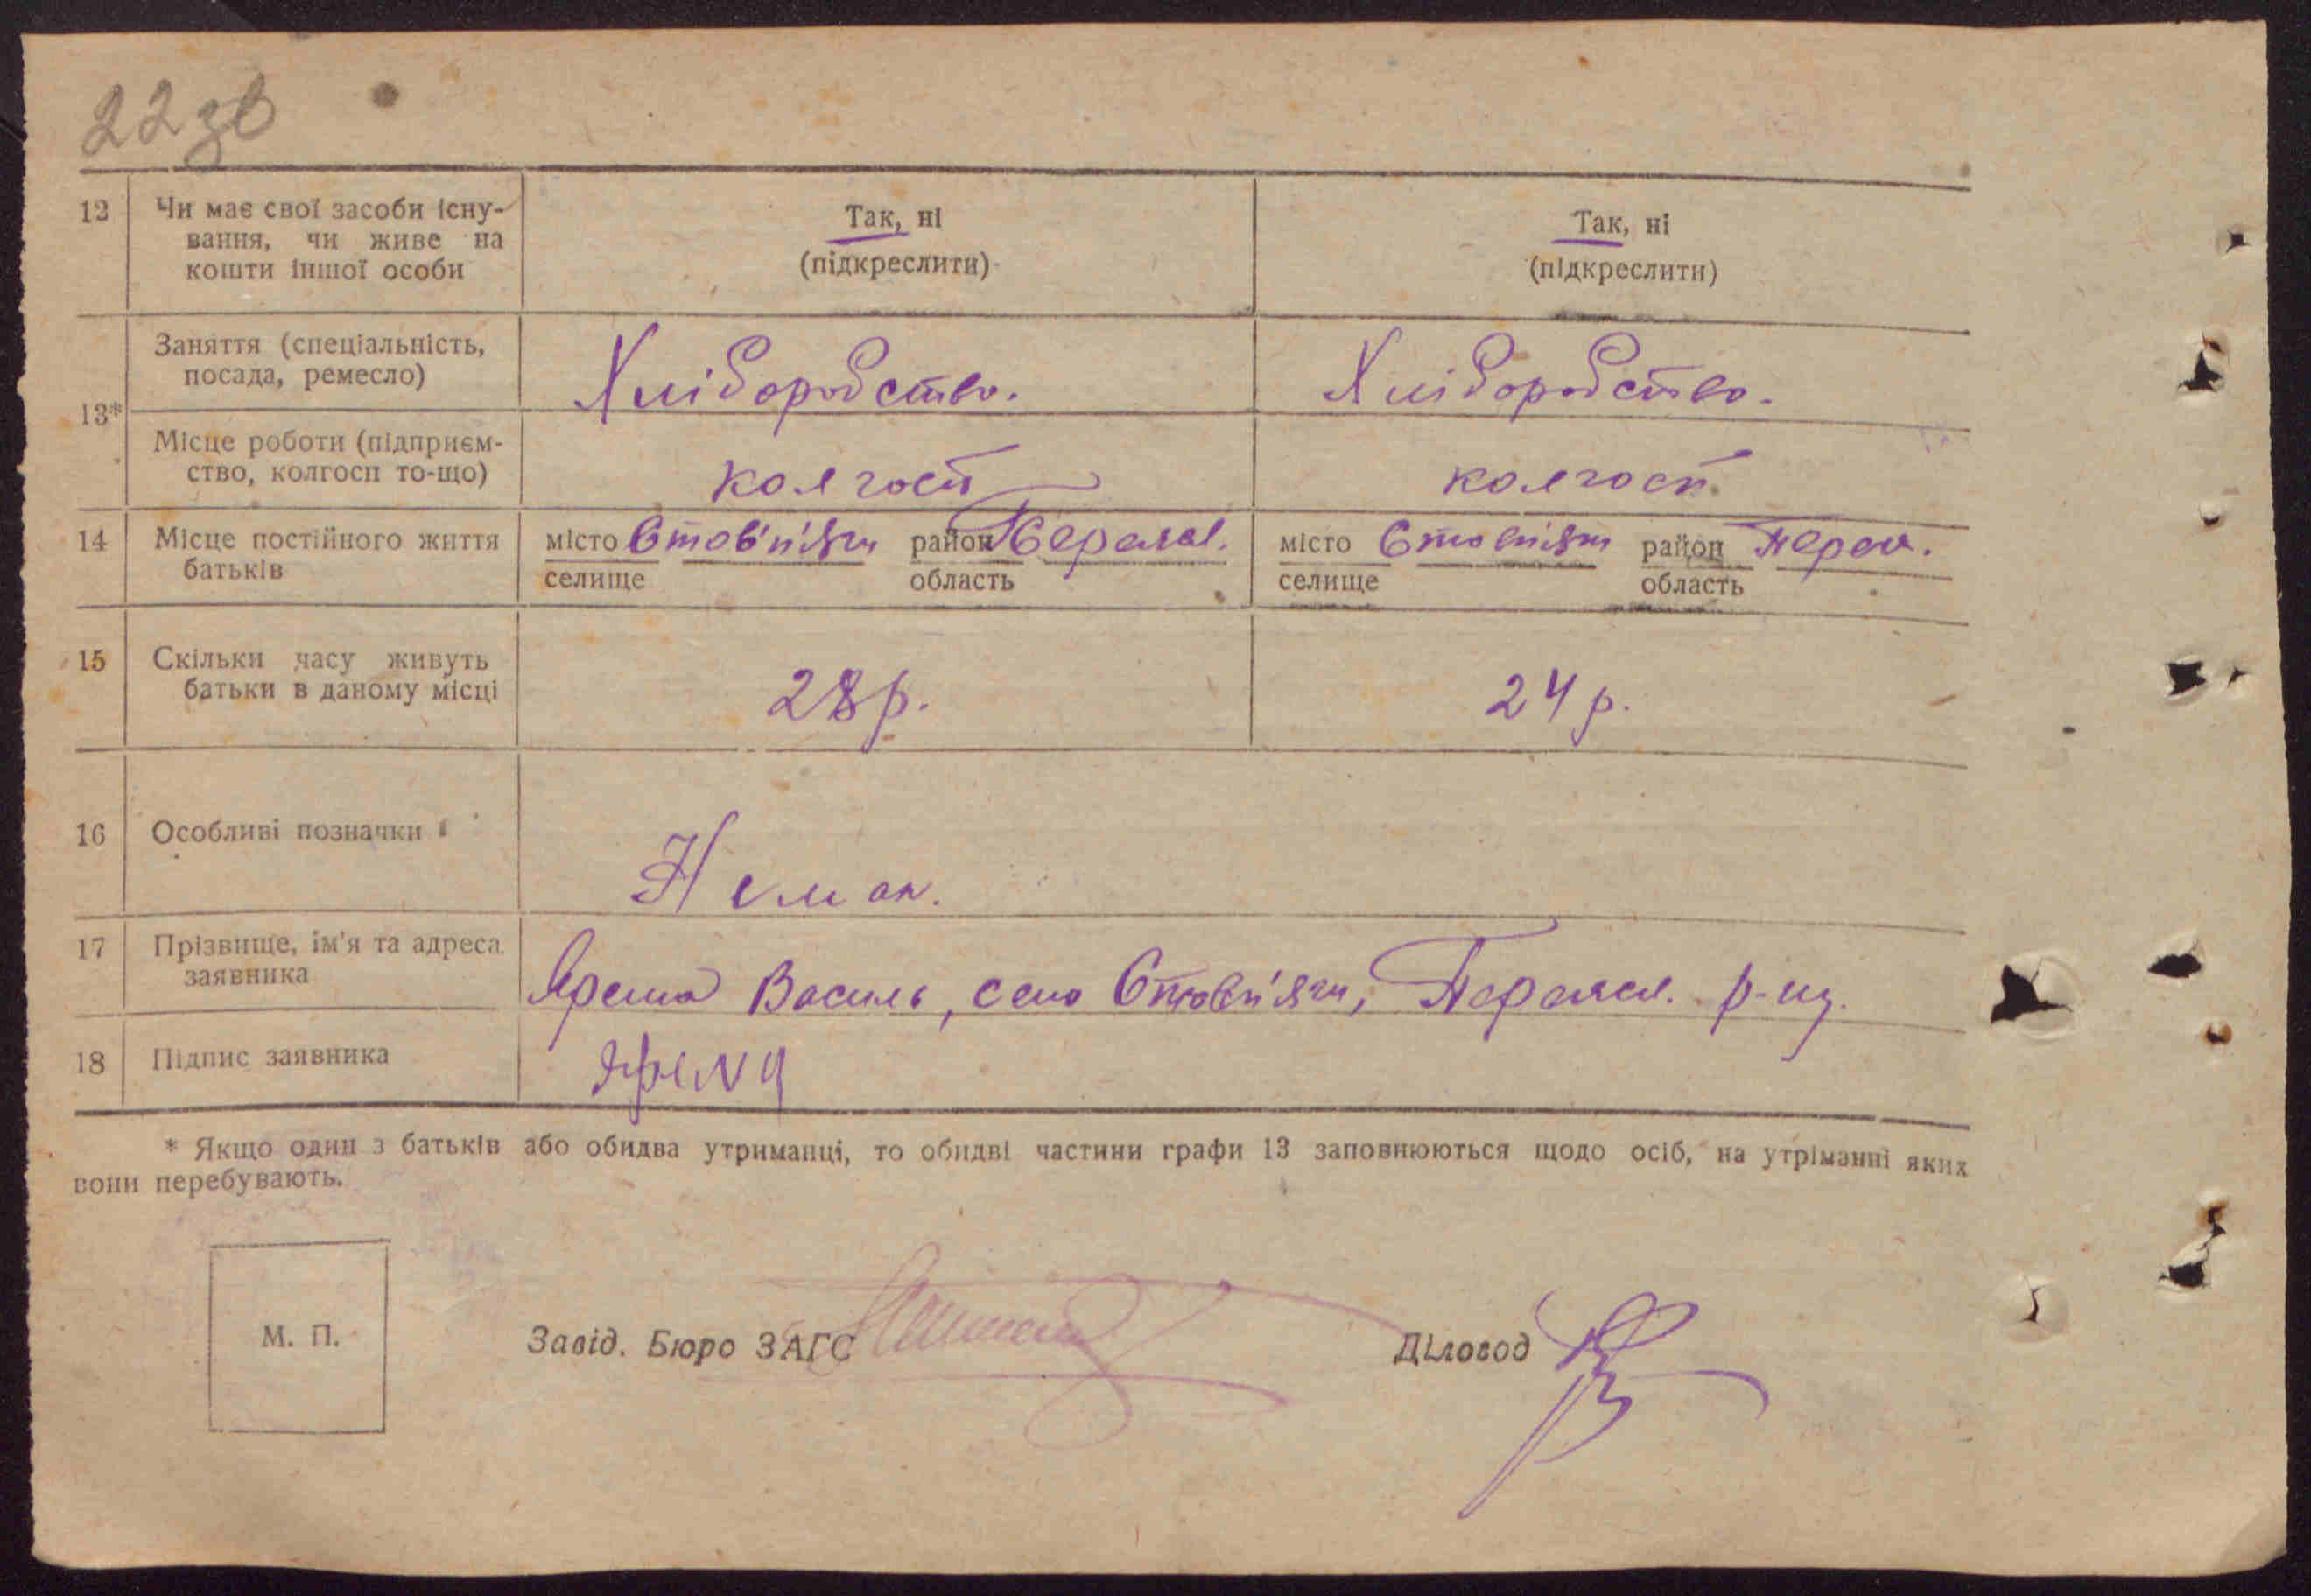 22 зв
12 Чи має свої засоби існу- Так, ні Так, ні
вання, чи живе на (підкреслити) (підкреслити)
кошти іншої особи
13* Заняття (спеціальність, Хліборобство. Хліборобство.
посада, ремесло)
Місце роботи (підприєм- колгосп колгосп
ство, колгосп то-що)
14 Місце постійного життя місто Стовп'яги район Переясл. місто Стовп'яги район Переяс.
батьків селище область селище область
15 Скільки часу живуть 28 р. 24 р.
батьки в даному місці
16 Особливі позначки Нема
17 Прізвище, ім'я та адреса Ярема Василь, село Стовп'яги, Переясл. р-ну.
заявника
18 Підпис заявника Ярема
* Якщо один з батьків або обидва утриманці, то обидві частини графи 13 заповнюються щодо осіб, на утріманні яких
вони перебувають.
М. П. Завід. Бюро ЗАГС Діловод